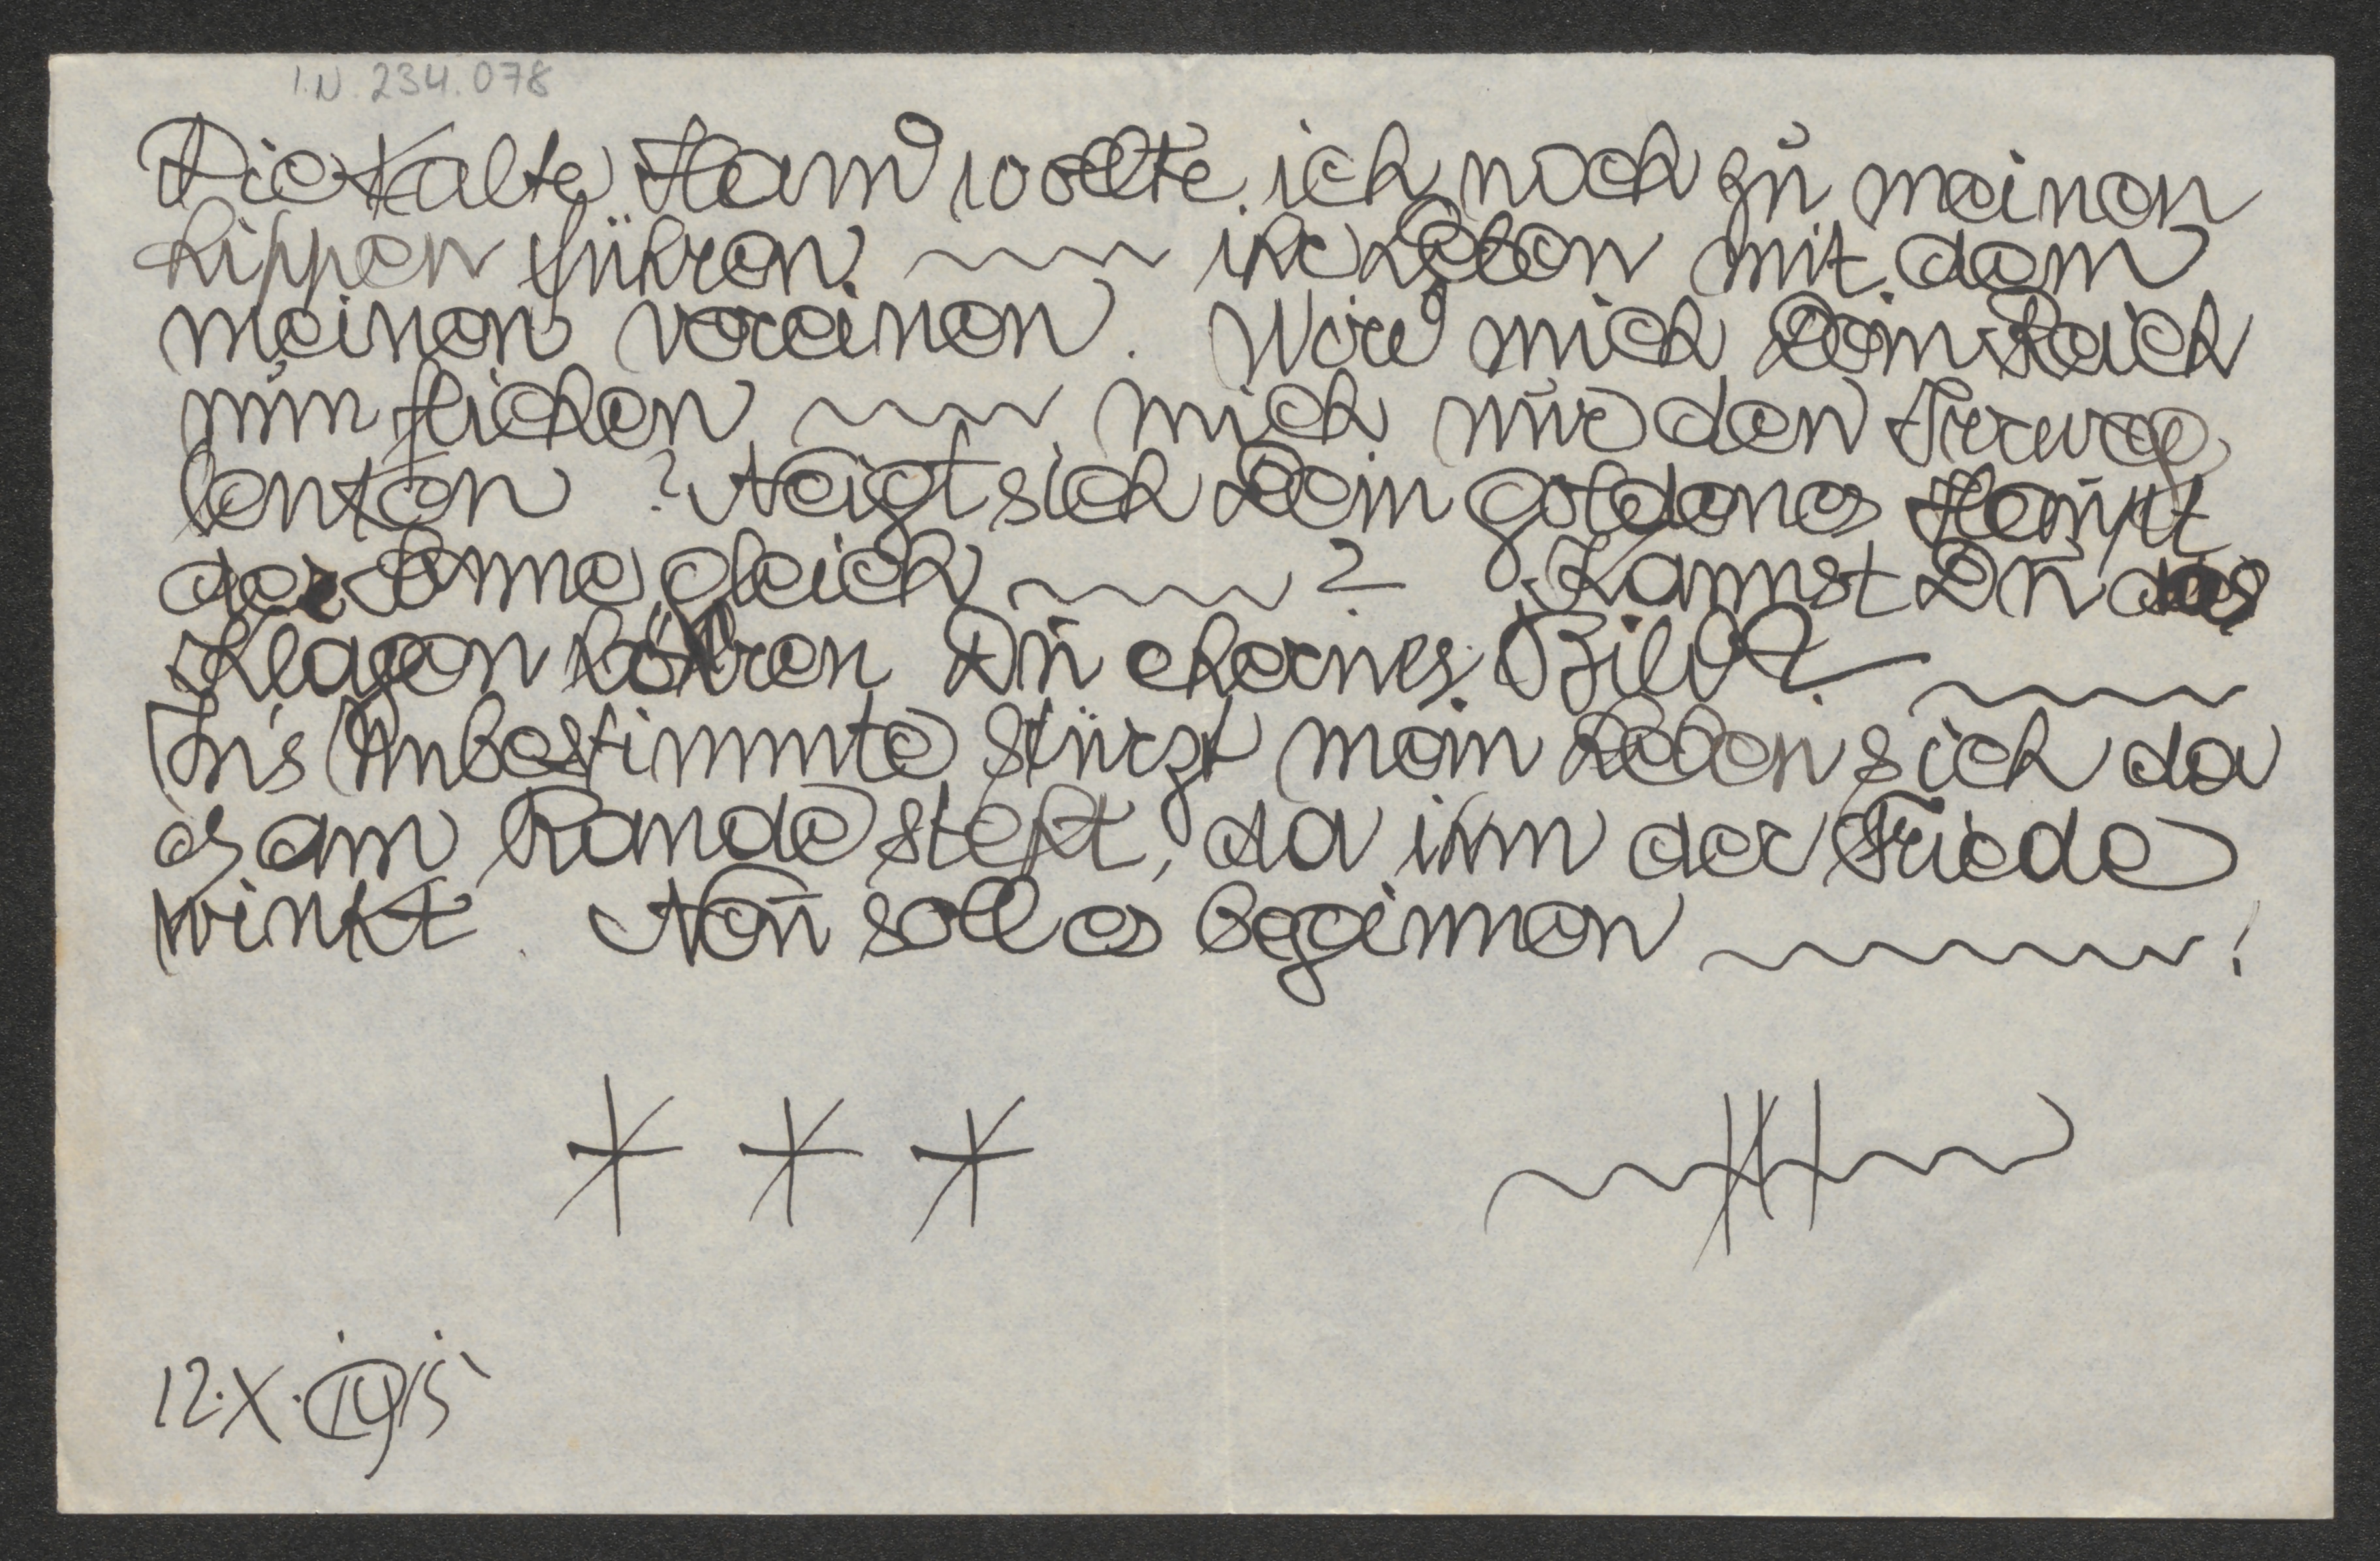 I.N. 234.078
Die kalte Hand wollte ich noch zu meinen
Lippen führen ~~~ ihr Leben mit dem
meinen vereinen. Wird mich Dein Reich
nun fliehen ~~~ mich nur den Irrweg
lenken? Neigt sich Dein goldenes Haupt
der Sonne gleich ~~~? Kannst Du das
Klagen hören Du ehernes Bild? ~~~
In's Unbestimmte stürzt mein Leben sich da
es am Rande steht, da ihm der Friede
winkt. Neu soll es beginnen ~~~!
* * *
12.X.1915